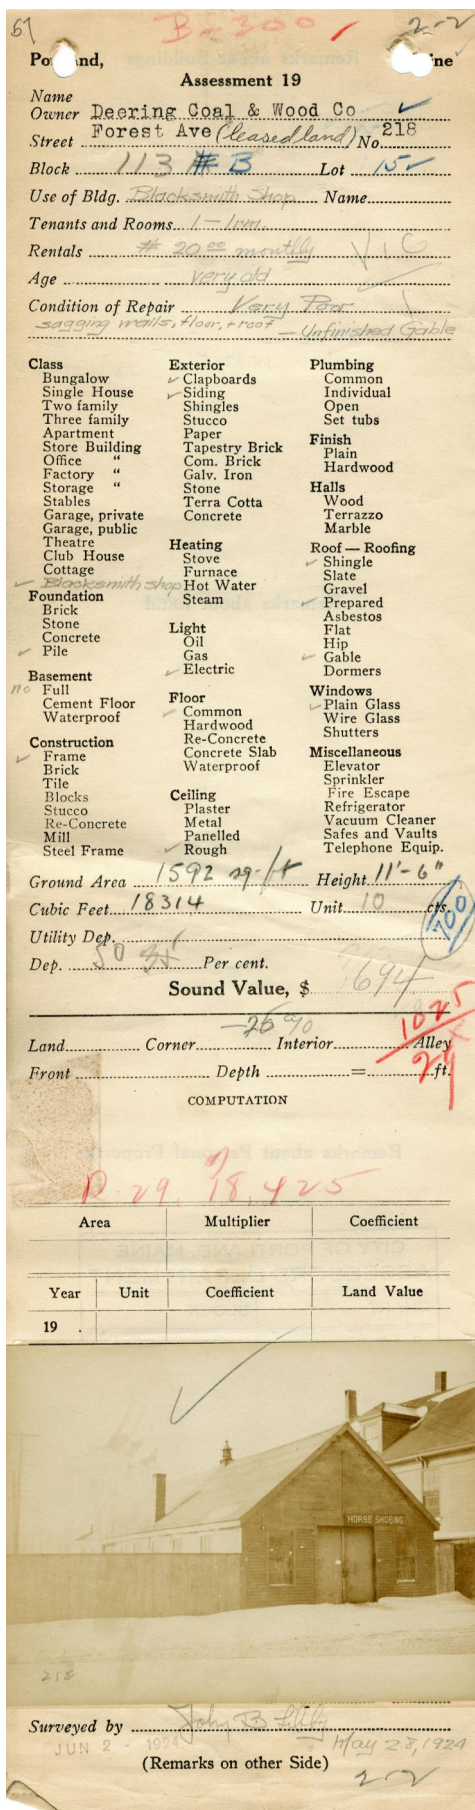 57 B-300 2-2
Portland, Maine
Assessment 19
Name
Owner Deering Coal & Wood Co
Street Forest Ave (leased land) No. 218
Block 113 #B Lot 15
Use of Bldg. Blacksmith Shop Name
Tenants and Rooms 1-1rm.
Rentals # 20.00 monthly V.I.C
Age very old
Condition of Repair Very Poor
sagging walls, floor, + roof — Unfinished Gable
Class
Bungalow
Single House
Two family
Three family
Apartment
Store Building
Office "
Factory "
Storage "
Stables
Garage, private
Garage, public
Theatre
Club House
Cottage
✓ Blacksmith shop
Foundation
Brick
Stone
Concrete
✓ Pile
Basement
no Full
Cement Floor
Waterproof
Construction
✓ Frame
Brick
Tile
Blocks
Stucco
Re-Concrete
Mill
Steel Frame
Exterior
✓ Clapboards
✓ Siding
Shingles
Stucco
Paper
Tapestry Brick
Com. Brick
Galv. Iron
Stone
Terra Cotta
Concrete
Heating
Stove
Furnace
Hot Water
Steam
Light
Oil
Gas
✓ Electric
Floor
✓ Common
Hardwood
Re-Concrete
Concrete Slab
Waterproof
Ceiling
Plaster
Metal
Panelled
✓ Rough
Plumbing
Common
Individual
Open
Set tubs
Finish
Plain
Hardwood
Halls
Wood
Terrazzo
Marble
Roof — Roofing
✓ Shingle
Slate
Gravel
✓ Prepared
Asbestos
Flat
Hip
✓ Gable
Dormers
Windows
✓ Plain Glass
Wire Glass
Shutters
Miscellaneous
Elevator
Sprinkler
Fire Escape
Refrigerator
Vacuum Cleaner
Safes and Vaults
Telephone Equip.
Ground Area 1592 sq. ft Height 11'-6"
Cubic Feet 18314 Unit 10 cts.
700
Utility Dep.
Dep. 50 Per cent.
Sound Value, $ 694
1025
24
Land Corner Interior Alley
Front Depth = ft.
COMPUTATION
Area Multiplier Coefficient
Year Unit Coefficient Land Value
19
HORSE SHOEING
218
Surveyed by John B Lilly
JUN 2 - 1924 May 28, 1924
(Remarks on other Side)
2-2